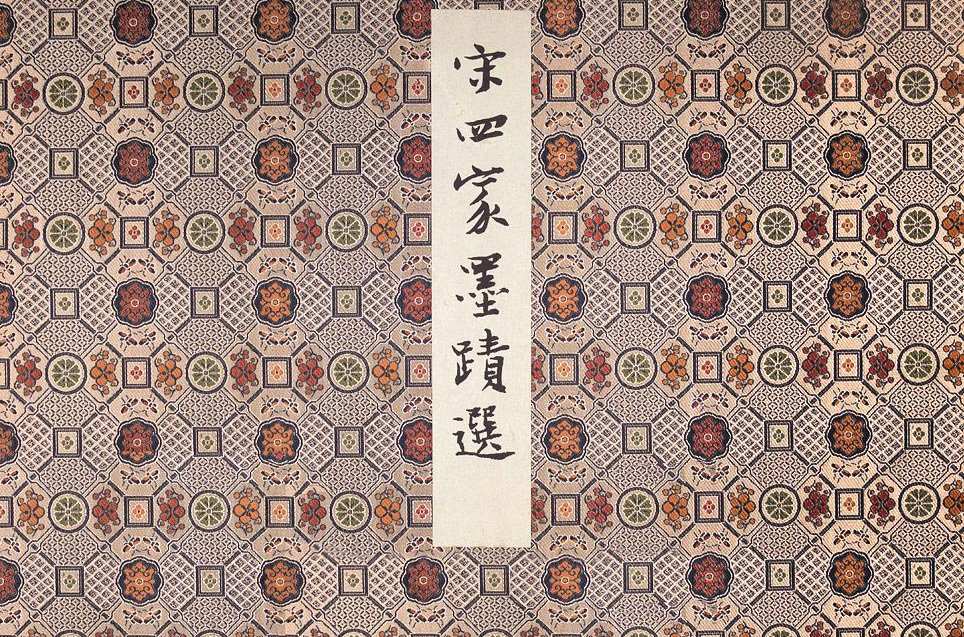 宋四家墨蹟選